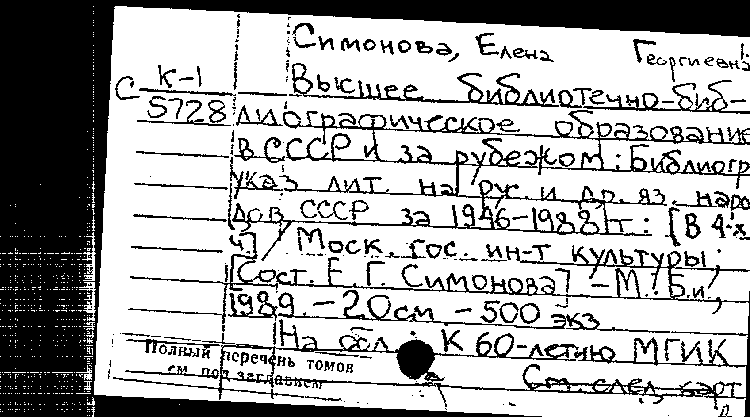 Симонова, Елена Георгиевна
К-1
С 5728
Высшее библиотечно-биб-
лиографическое образование
в СССР и за рубежом: Библиогр.
указ. лит. на рус. и др. яз. наро-
дов СССР за 1946-1988 гг.: [В 4-х
ч.] / Моск. гос. ин-т культуры;
[Сост. Е. Г. Симонова] - М.: Б.и.,
1989. - 20 см - 500 экз.
На обл.: К 60-летию МГИК
Полный перечень томов
см. под заглавием
См. след. карт